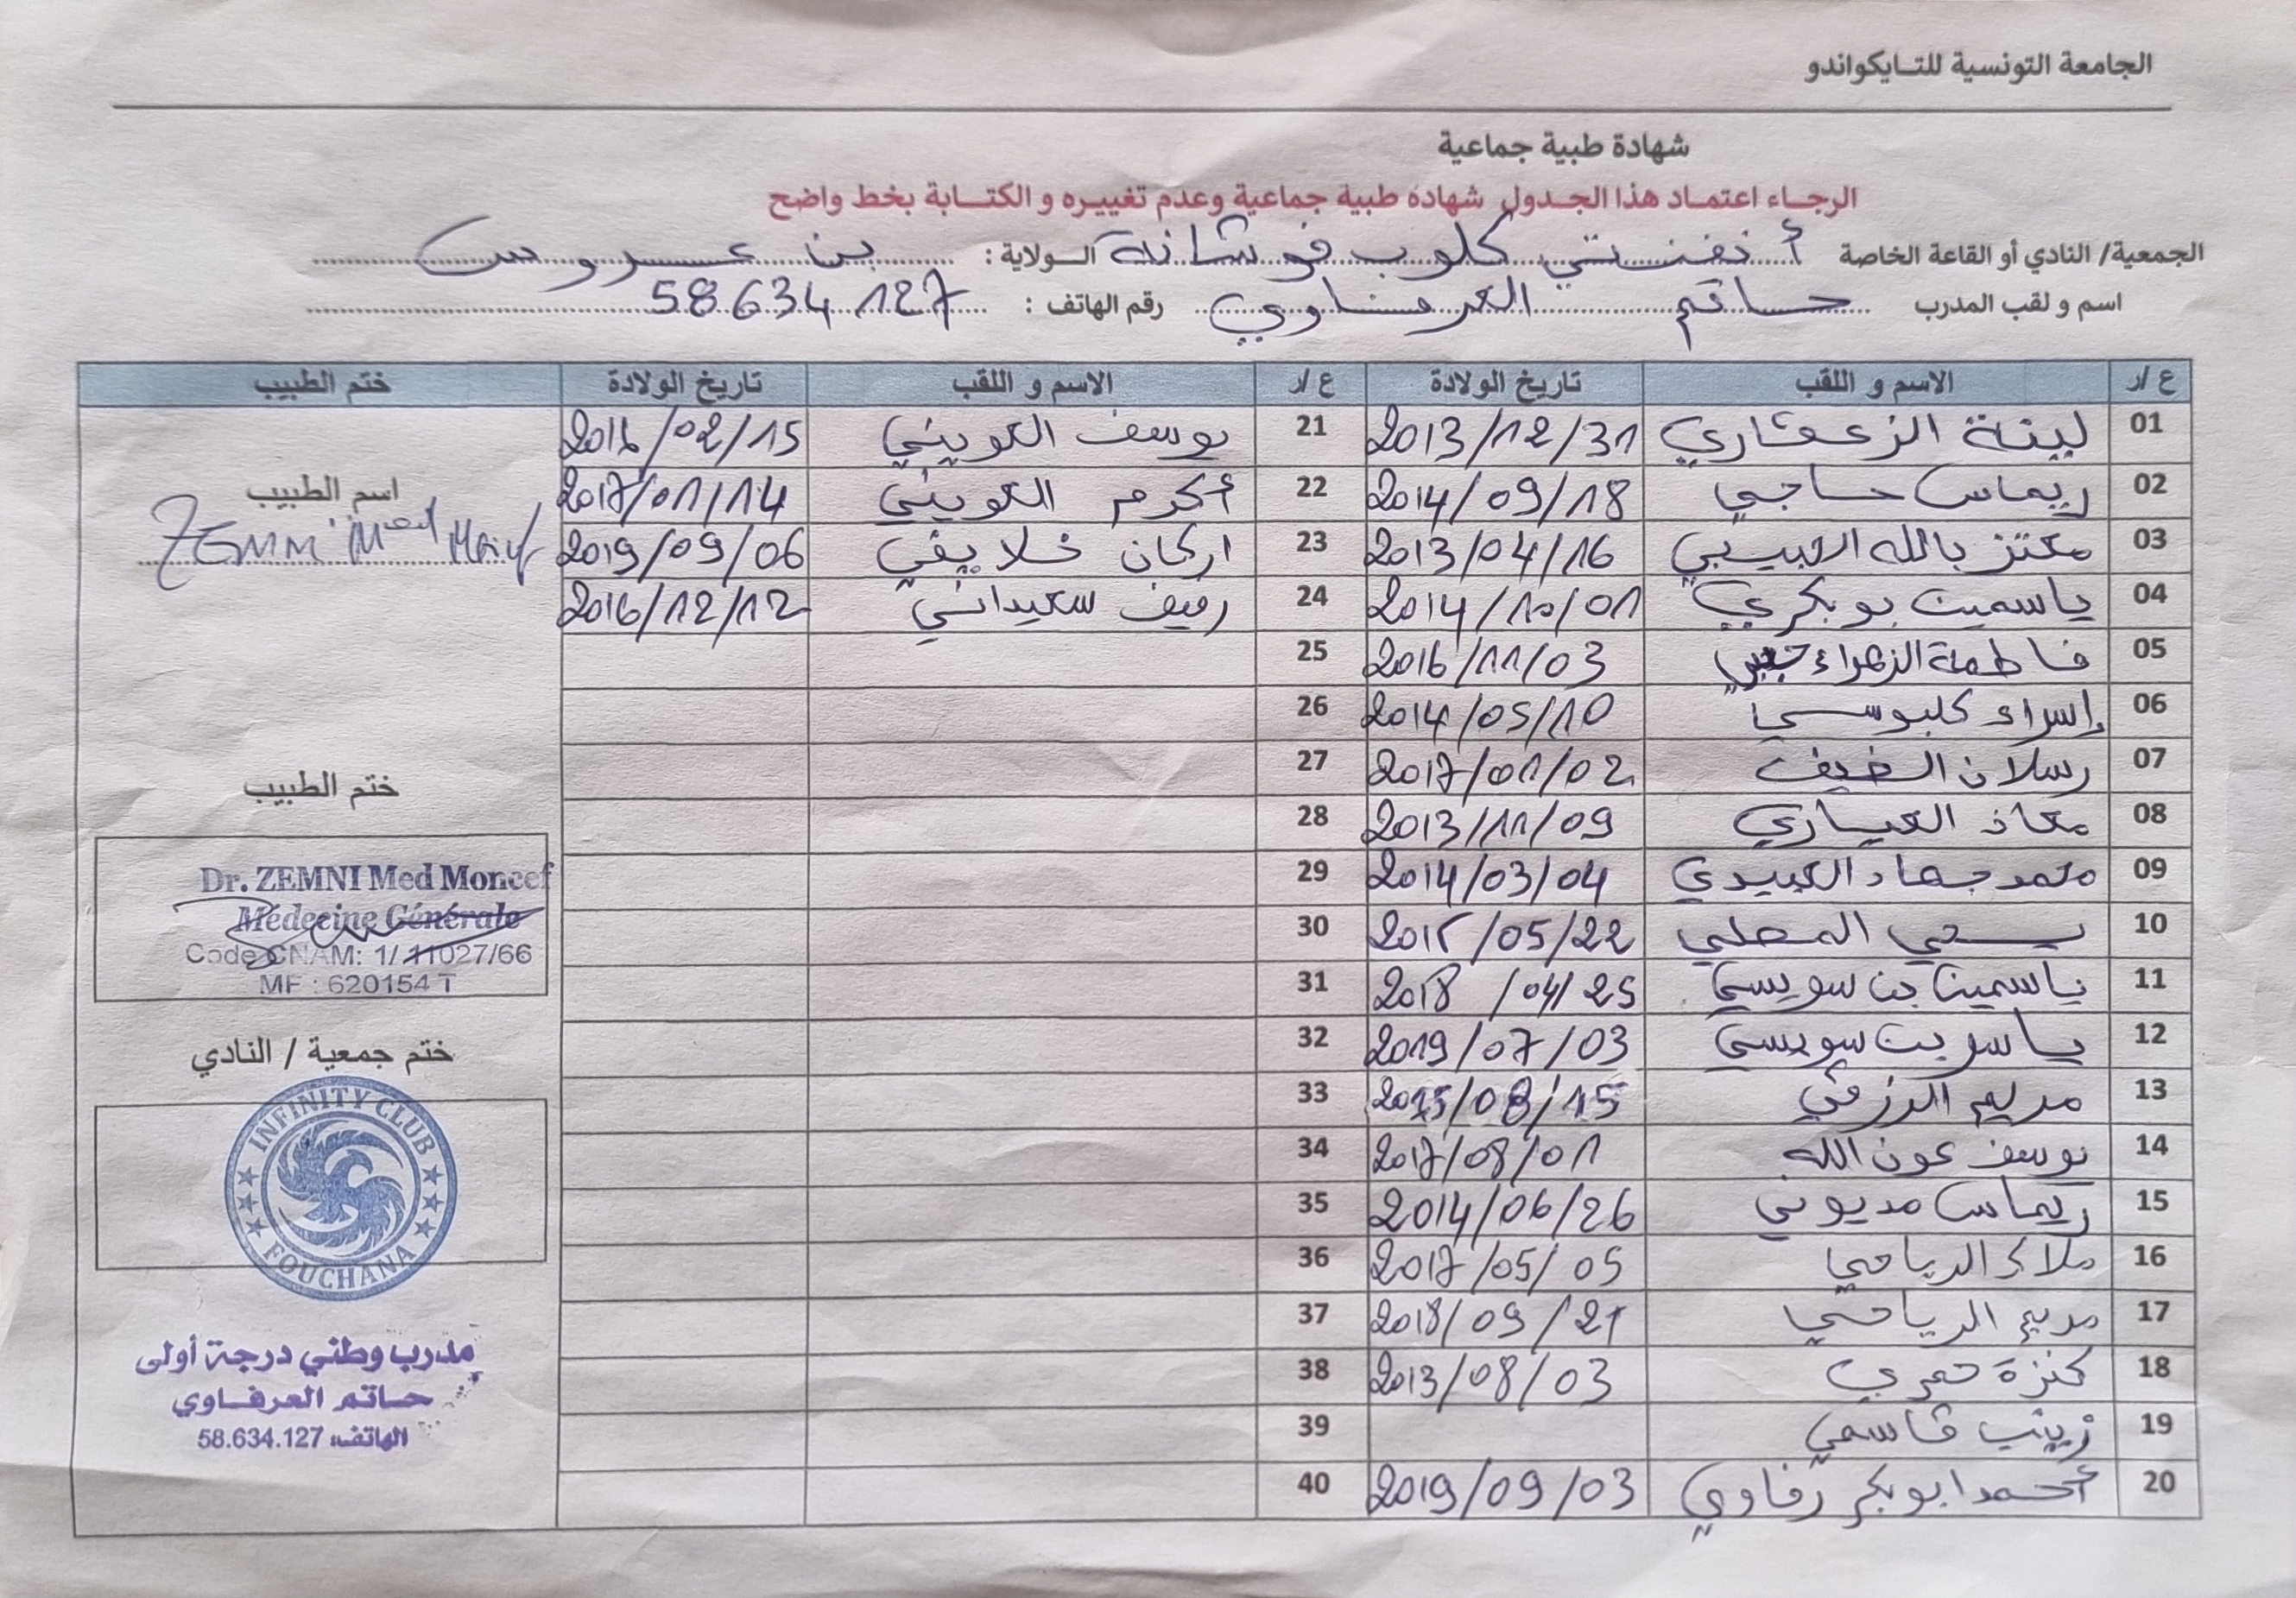 الجامعة التونسية للتــايكواندو
شهادة طبية جماعية
الرجــاء اعتمــاد هذا الجــدول شهادة طبية جماعية وعدم تغييــره و الكتــابة بخط واضح
الجمعية/ النادي أو القاعة الخاصة أنفنتي كلوب فوشانة الــولاية : بن عروس
اسم و لقب المدرب حاتم العرفاوي رقم الهاتف : 58.634.127
ع /ر الاسم و اللقب تاريخ الولادة ع /ر الاسم و اللقب تاريخ الولادة ختم الطبيب
01 لينة الزعفاري 2013/12/31 21 يوسف العويني /02/15
02 ريماس حاجي 2014/09/18 22 أكرم العويني 2017/01/14
03 معتز بالله الحبيبي 2013/04/16 23 اركان خلايفي 2019/09/06
04 ياسمين بوبكري 2014/10/01 24 رهيف سعيداني 2016/12/12
05 فاطمة الزهراء 2016/11/03 25
06 إسراء كلبوسي 2014/05/10 26
07 رسلان الضيف 2017/01/02 27
08 معاذ العياري 2013/11/09 28
09 محمد جهاد العبيدي 2014/03/04 29
10 يحي المحلي /05/22 30
11 ياسمين بن سويسي 2018/04/25 31
12 ياسر بن سويسي 2019/07/03 32
13 مريم الرزقي 2015/08/15 33
14 يوسف عون الله 2017/08/01 34
15 ريماس مديوني 2014/06/26 35
16 ملاك الرياحي 2017/05/05 36
17 مريم الرياحي 2018/09/21 37
18 كنزة حمري 2013/08/03 38
19 زينب قاسمي 39
20 أحمد ابو بكر رفاوي 2019/09/03 40
اسم الطبيب
Zemni Med Moncef
ختم الطبيب
Dr. ZEMNI Med Moncef
Médecine Générale
Code CNAM: 1/11027/66
MF : 620154 T
ختم جمعية / النادي
INFINITY CLUB
FOUCHANA
مدرب وطني درجة أولى
حــاتم العرفــاوي
الهاتف: 58.634.127